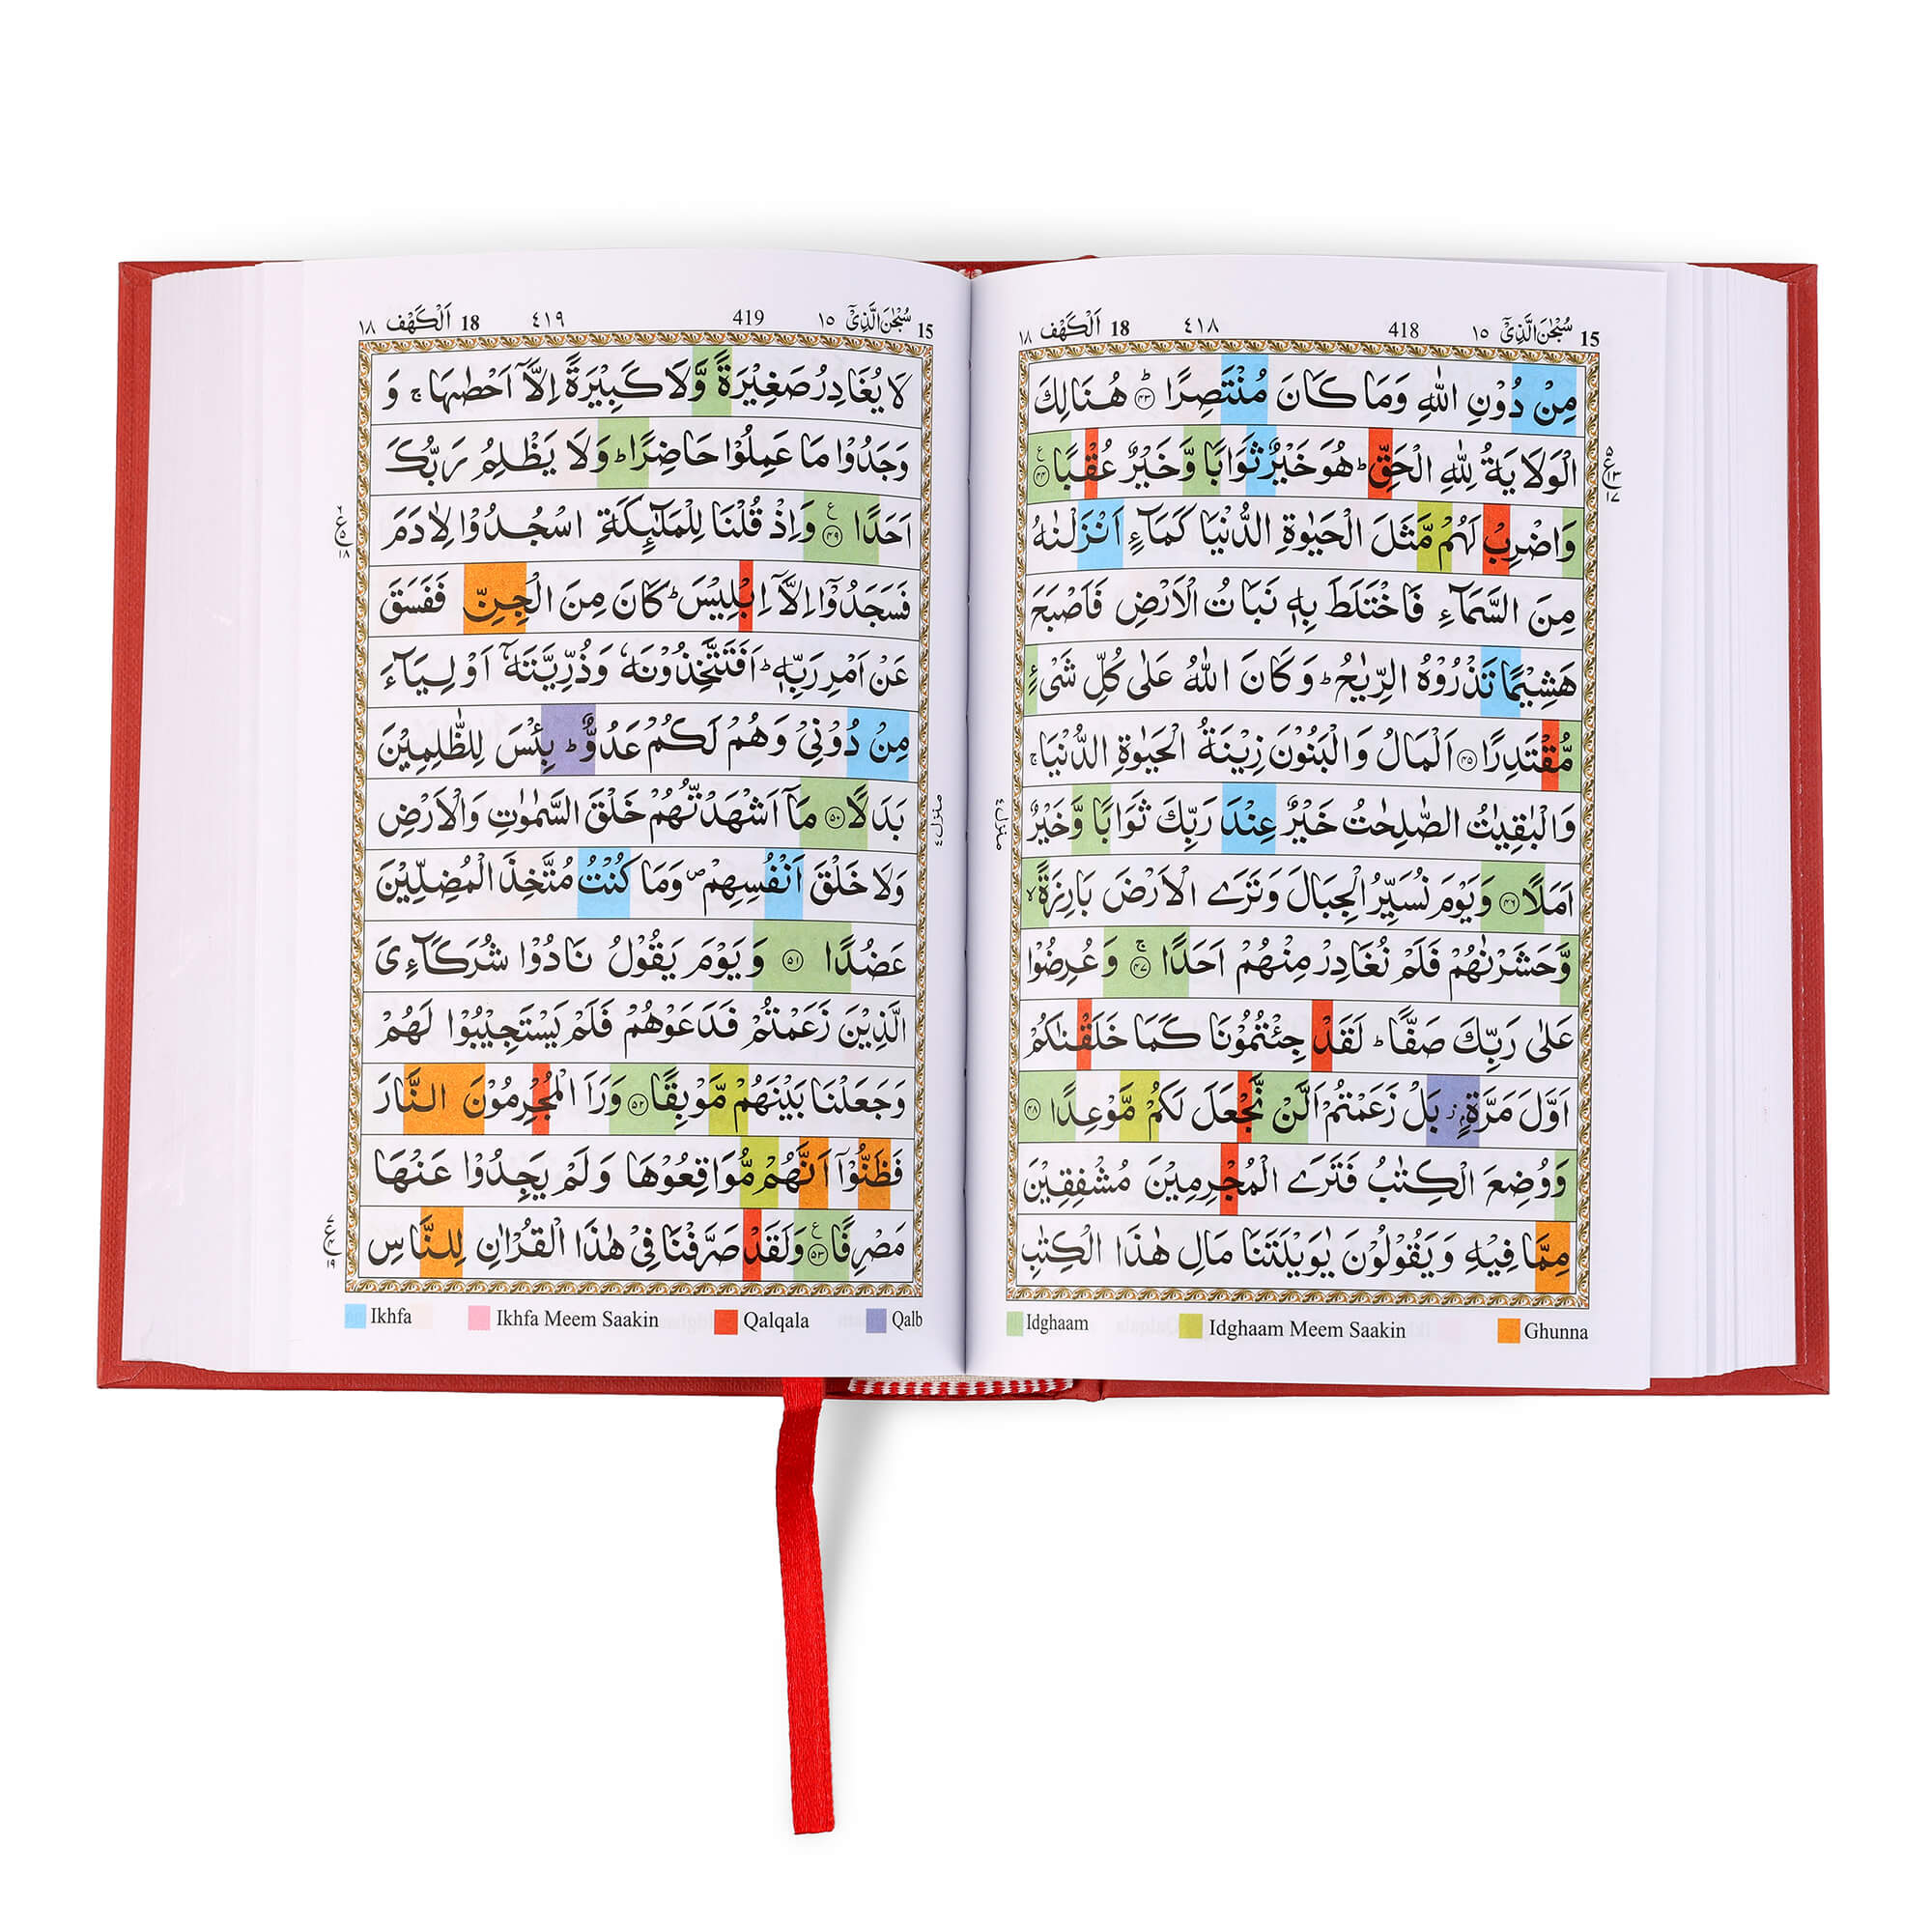 15 سُبْحٰنَ الَّذِیْۤ ١٥ 418 ٤١٨ 18 اَلْكَهْف ١٨
مِنْ دُوْنِ اللّٰهِ وَمَا كَانَ مُنْتَصِرًا ؕ ﴿۴۳﴾ هُنَالِكَ
الْوَلَایَةُ لِلّٰهِ الْحَقِّ ؕ هُوَ خَیْرٌ ثَوَابًا وَّخَیْرٌ عُقْبًا ﴿۴۴﴾ ع
وَاضْرِبْ لَهُمْ مَّثَلَ الْحَیٰوةِ الدُّنْیَا كَمَآءٍ اَنْزَلْنٰهُ
مِنَ السَّمَآءِ فَاخْتَلَطَ بِهٖ نَبَاتُ الْاَرْضِ فَاَصْبَحَ
هَشِیْمًا تَذْرُوْهُ الرِّیٰحُ ؕ وَكَانَ اللّٰهُ عَلٰی كُلِّ شَیْءٍ
مُّقْتَدِرًا ﴿۴۵﴾ اَلْمَالُ وَالْبَنُوْنَ زِیْنَةُ الْحَیٰوةِ الدُّنْیَا ۚ
وَالْبٰقِیٰتُ الصّٰلِحٰتُ خَیْرٌ عِنْدَ رَبِّكَ ثَوَابًا وَّخَیْرٌ
اَمَلًا ﴿۴۶﴾ وَیَوْمَ نُسَیِّرُ الْجِبَالَ وَتَرَی الْاَرْضَ بَارِزَةً ۙ
وَّحَشَرْنٰهُمْ فَلَمْ نُغَادِرْ مِنْهُمْ اَحَدًا ۚ ﴿۴۷﴾ وَعُرِضُوْا
عَلٰی رَبِّكَ صَفًّا ؕ لَقَدْ جِئْتُمُوْنَا كَمَا خَلَقْنٰكُمْ
اَوَّلَ مَرَّةٍۭ ؗ بَلْ زَعَمْتُمْ اَلَّنْ نَّجْعَلَ لَكُمْ مَّوْعِدًا ﴿۴۸﴾
وَوُضِعَ الْكِتٰبُ فَتَرَی الْمُجْرِمِیْنَ مُشْفِقِیْنَ
مِمَّا فِیْهِ وَیَقُوْلُوْنَ یٰوَیْلَتَنَا مَالِ هٰذَا الْكِتٰبِ
Idghaam Idghaam Meem Saakin Ghunna
ع ٥ ١٣ ١٧
منزل ٤
15 سُبْحٰنَ الَّذِیْۤ ١٥ 419 ٤١٩ 18 اَلْكَهْف ١٨
لَا یُغَادِرُ صَغِیْرَةً وَّلَا كَبِیْرَةً اِلَّاۤ اَحْصٰىهَا ۚ وَ
وَجَدُوْا مَا عَمِلُوْا حَاضِرًا ؕ وَلَا یَظْلِمُ رَبُّكَ
اَحَدًا ﴿۴۹﴾ ع وَاِذْ قُلْنَا لِلْمَلٰٓىِٕكَةِ اسْجُدُوْا لِاٰدَمَ
فَسَجَدُوْۤا اِلَّاۤ اِبْلِیْسَ ؕ كَانَ مِنَ الْجِنِّ فَفَسَقَ
عَنْ اَمْرِ رَبِّهٖ ؕ اَفَتَتَّخِذُوْنَهٗ وَذُرِّیَّتَهٗۤ اَوْلِیَآءَ
مِنْ دُوْنِیْ وَهُمْ لَكُمْ عَدُوٌّ ؕ بِئْسَ لِلظّٰلِمِیْنَ
بَدَلًا ﴿۵۰﴾ مَاۤ اَشْهَدْتُّهُمْ خَلْقَ السَّمٰوٰتِ وَالْاَرْضِ
وَلَا خَلْقَ اَنْفُسِهِمْ ۪ وَمَا كُنْتُ مُتَّخِذَ الْمُضِلِّیْنَ
عَضُدًا ﴿۵۱﴾ وَیَوْمَ یَقُوْلُ نَادُوْا شُرَكَآءِیَ
الَّذِیْنَ زَعَمْتُمْ فَدَعَوْهُمْ فَلَمْ یَسْتَجِیْبُوْا لَهُمْ
وَجَعَلْنَا بَیْنَهُمْ مَّوْبِقًا ﴿۵۲﴾ وَرَاَ الْمُجْرِمُوْنَ النَّارَ
فَظَنُّوْۤا اَنَّهُمْ مُّوَاقِعُوْهَا وَلَمْ یَجِدُوْا عَنْهَا
مَصْرِفًا ﴿۵۳﴾ ع وَلَقَدْ صَرَّفْنَا فِیْ هٰذَا الْقُرْاٰنِ لِلنَّاسِ
Ikhfa Ikhfa Meem Saakin Qalqala Qalb
منزل ٤